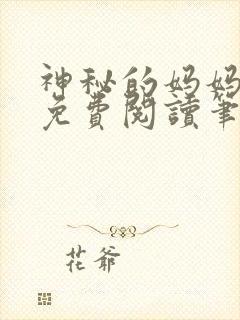 神秘的妈妈
免費閱讀筆
花爺